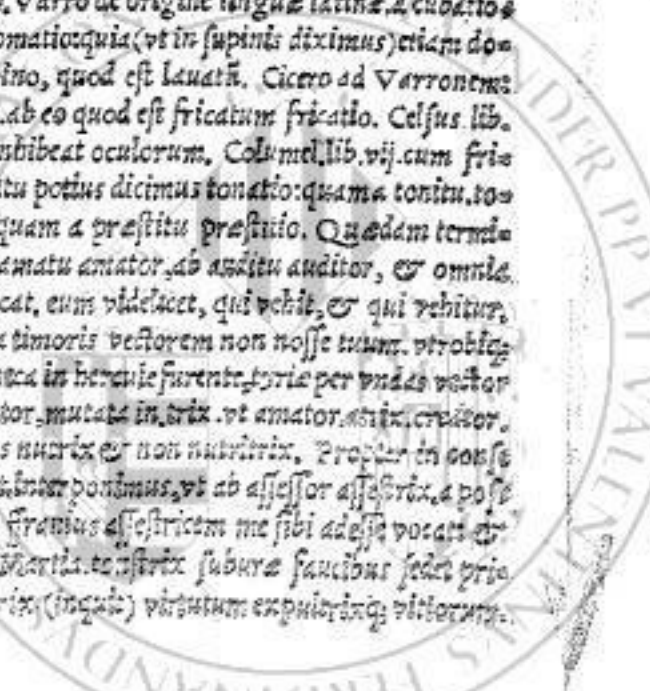 Varro de origine linguæ latinæ, accubatio⸗
omatio:quia (vt in supinis diximus) etiam do⸗
ino, quod est lauatũ. Cicero ad Varronem:
.ab eo quod est fricatum fricatio. Celsus lib.
nhibeat oculorum. Columel.lib.vij.cum fri⸗
tu potius dicimus tonatio:quam a tonitu.to⸗
quam a præstitu præstitio. Quædam termi⸗
amatu amator,ab auditu auditor, & omnia
cat. eum videlicet, qui vehit,& qui vehitur.
timoris vectorem non nosse tuum. vtrobiq;
in hercule furente,tyria per vndas vector
tor,mutata in.trix .vt amator.atrix.creator.
s nutrix & non nutritrix. Propter in conse
interponimus,vt ab assessor assestrix.a posse
assestricem me sibi adesse vocati &
Martia.tonstrix suburæ faucibus sedet pri⸗
rix (inquit) virtutum expultrixq; vitiorum.